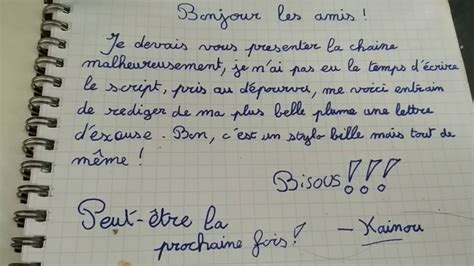 Bonjour les amis !
Je devais vous presenter la chaine
malheureusement, je n'ai pas eu le temps d'écrire
le script, pris au dépourvu, me voici entrain
de rediger de ma plus belle plume une lettre
d'excuse. Bon, c'est un stylo bille mais tout de
même !
Bisous !!!
Peut-être la
prochaine fois !
— Kainou